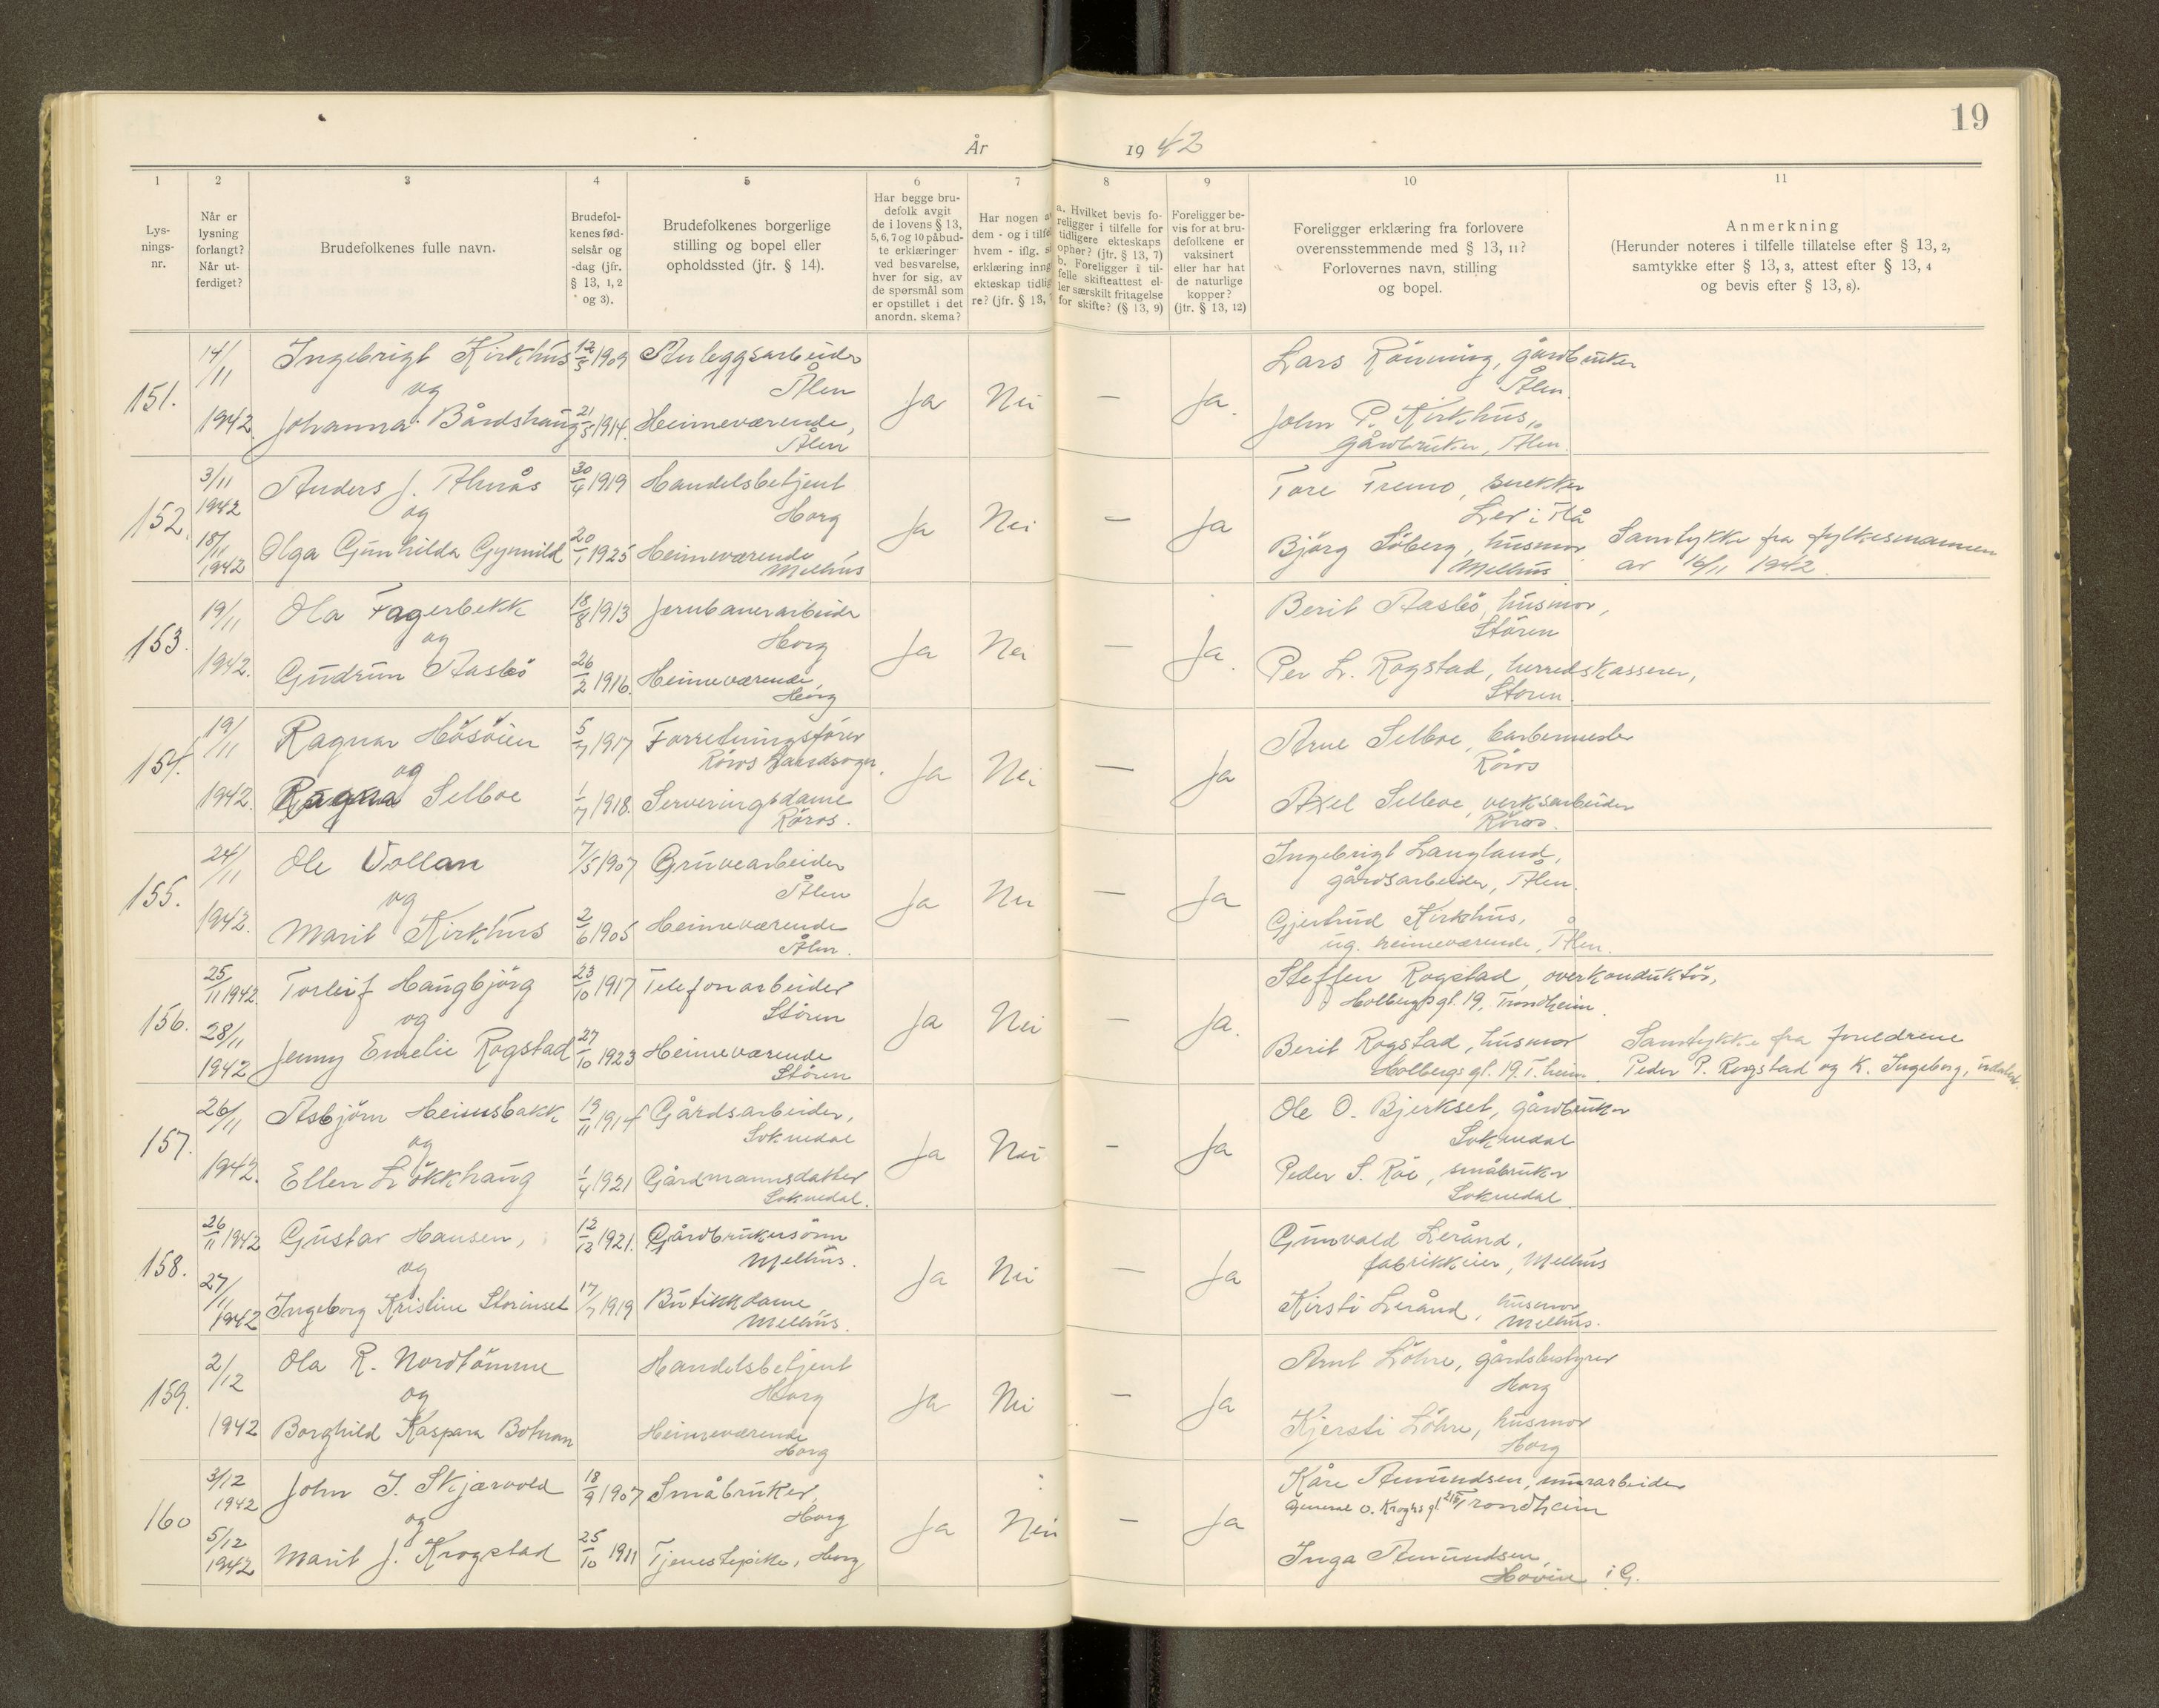 19
År 19 42
1 2 3 4 5 6 7 8 9 10 11
Lys-
nings-
nr.
Når er
lysning
forlangt?
Når ut-
ferdiget?
Brudefolkenes fulle navn.
Brudefol-
kenes fød-
selsår og
-dag (jfr.
§ 13, 1, 2
og 3).
Brudefolkenes borgerlige
stilling og bopel eller
opholdssted (jfr. § 14).
Har begge bru-
defolk avgit
de i lovens § 13,
5, 6, 7 og 10 påbud-
te erklæringer
ved besvarelse,
hver for sig, av
de spørsmål som
er opstillet i det
anordn. skema?
Har nogen a
dem - og i tilfe
hvem - iflg. s
erklæring inng
ekteskap tidlig
re? (jfr. § 13,
a. Hvilket bevis fo-
religger i tilfelle for
tidligere ekteskaps
ophør? (jfr. § 13, 7)
b. Foreligger i til-
felle skifteattest el-
ler særskilt fritagelse
for skifte? (§ 13, 9)
Foreligger be-
vis for at bru-
defolkene er
vaksinert
eller har hat
de naturlige
kopper?
(jfr. § 13, 12)
Foreligger erklæring fra forlovere
overensstemmende med § 13, 11?
Forlovernes navn, stilling
og bopel.
Anmerkning
(Herunder noteres i tilfelle tillatelse efter § 13, 2,
samtykke efter § 13, 3, attest efter § 13, 4
og bevis efter § 13, 8).
151.
14/11
1942.
Ingebrigt Kirkhus
og
Johanna Bårdshaug
12/5 1909
21/5 1914.
Anleggsarbeider
Ålen
Heimeværende,
Ålen
Ja
Nei
—
Ja.
Lars Rönning, gårdbruker
Ålen.
John P. Kirkhus,
gårdbruker, Ålen.
152.
3/11
1942
18/11
1942
Anders J. Almås
og
Olga Gunhilda Gynnild
30/4 1919
20/1 1925
Handelsbetjent
Horg
Heimeværende
Melhus
Ja
Nei
—
Ja
Tore Tremo, snekker
Ler i Flå
Björg Söberg, husmor
Melhus
Samtykke fra fylkesmannen
av 16/11 1942.
153.
19/11
1942.
Ola Fagerbekk
og
Gudrun Aasbö
18/8 1913
26/2 1916.
Jernbanearbeider
Horg
Heimeværende,
Horg
Ja
Nei
—
Ja.
Berit Aasbö, husmor,
Stören
Per L. Rogstad, herredskasserer,
Stören.
154.
19/11
1942.
Ragnar Hösöien
og
Ragna Selboe
5/7 1917
1/7 1918.
Forretningsförer
Röros landsogn.
Serveringsdame
Röros.
Ja
Nei
—
Ja
Arne Selboe, barbermester
Röros
Axel Selboe, verksarbeider
Röros.
155.
24/11
1942.
Ole Vollan
og
Marit Kirkhus
7/5 1907
2/6 1905
Gruvearbeider
Ålen
Heimeværende
Ålen.
Ja
Nei
—
Ja
Ingebrigt Langland,
gårdsarbeider, Ålen.
Gjertrud Kirkhus,
ug. heimeværende, Ålen.
156.
25/11 1942.
28/11
1942
Torleif Haugbjörg
og
Jenny Emelie Rogstad
23/10 1917
27/10 1923
Telefonarbeider
Stören
Heimeværende
Stören
Ja
Nei
—
Ja.
Steffen Rogstad, overkonduktör,
Holbergs gt. 19, Trondheim.
Berit Rogstad, husmor
Holbergs gt. 19. T.heim.
Samtykke fra foreldrene
Peder P. Rogstad og K. Ingeborg,
157.
26/11
1942.
Asbjörn Heimsbakk
og
Ellen Lökkhaug
19/11 1914
1/4 1921
Gårdsarbeider,
Soknedal
Gårdmannsdatter
Soknedal.
Ja
Nei
—
Ja
Ole O. Bjerkset, gårdbruker
Soknedal
Peder S. Röe, småbruker
Soknedal
158.
26/11 1942
27/11
1942
Gustav Hansen,
og
Ingeborg Kristine Storinset
12/12 1921.
17/7 1919
Gårdbrukersönn
Melhus.
Butikkdame,
Melhus.
Ja
Nei
—
Ja
Gunvald Lerånd,
fabrikkeier, Melhus
Kirsti Lerånd, husmor
Melhus.
159.
2/12
1942
Ola R. Nordtömme
og
Borghild Kaspara Botnan
Handelsbetjent
Horg
Heimeværende
Horg
Ja
Nei
—
Ja
Arnt Löhre, gårdsbestyrer
Horg
Kjersti Löhre, husmor
Horg
160
3/12
1942
5/12
1942
John I. Skjærvold
og
Marit J. Krogstad
18/9 1907
25/10 1911
Småbruker,
Horg
Tjenestepike, Horg
Ja
Nei
—
Ja
Kåre Amundsen, murarbeider
General v. Kroghs gt. Trondheim
Inga Amundsen,
Hovin i G.